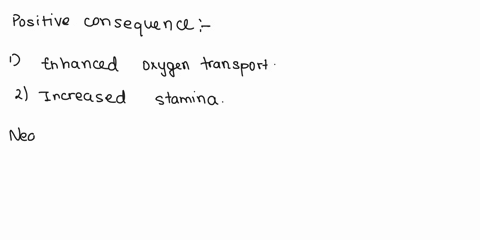 Positive consequence :-
1) Enhanced oxygen transport.
2) Increased stamina.
Neo